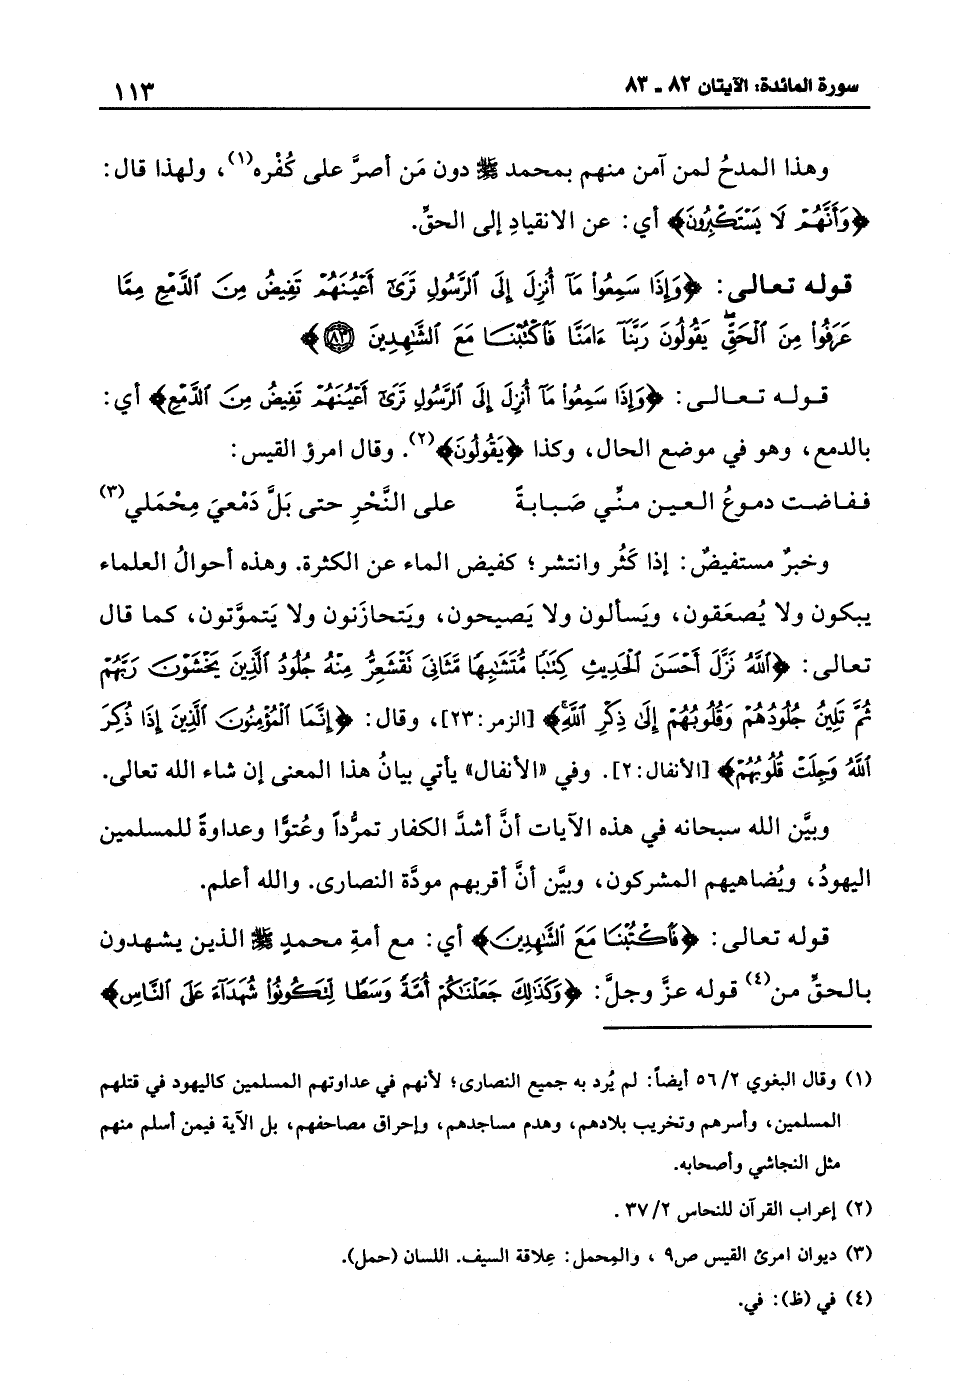 سورة المائدة: الآيتان ٨٢ ـ ٨٣
١١٣
وهذا المدحُ لمن آمن منهم بمحمد ﷺ دون مَن أصرَّ على كُفْره(١)، ولهذا قال:
﴿وَأَنَّهُمْ لَا يَسْتَكْبِرُونَ﴾ أي: عن الانقيادِ إلى الحقِّ.
قوله تعالى: ﴿وَإِذَا سَمِعُوا۟ مَآ أُنزِلَ إِلَى ٱلرَّسُولِ تَرَىٰٓ أَعْيُنَهُمْ تَفِيضُ مِنَ ٱلدَّمْعِ مِمَّا
عَرَفُوا۟ مِنَ ٱلْحَقِّۖ يَقُولُونَ رَبَّنَآ ءَامَنَّا فَٱكْتُبْنَا مَعَ ٱلشَّٰهِدِينَ ٨٣﴾
قوله تعالى: ﴿وَإِذَا سَمِعُوا۟ مَآ أُنزِلَ إِلَى ٱلرَّسُولِ تَرَىٰٓ أَعْيُنَهُمْ تَفِيضُ مِنَ ٱلدَّمْعِ﴾ أي:
بالدمع، وهو في موضع الحال، وكذا ﴿يَقُولُونَ﴾(٢). وقال امرؤ القيس:
ففاضت دموعُ العين منِّي صَبابةً على النَّحْرِ حتى بَلَّ دَمْعيَ مِحْمَلي(٣)
وخبرٌ مستفيضٌ: إذا كَثُر وانتشر؛ كفيض الماء عن الكثرة. وهذه أحوالُ العلماء
يبكون ولا يُصعَقون، ويَسألون ولا يَصيحون، ويَتحازَنون ولا يَتموَّتون، كما قال
تعالى: ﴿ٱللَّهُ نَزَّلَ أَحْسَنَ ٱلْحَدِيثِ كِتَٰبًا مُّتَشَٰبِهًا مَّثَانِىَ تَقْشَعِرُّ مِنْهُ جُلُودُ ٱلَّذِينَ يَخْشَوْنَ رَبَّهُمْ
ثُمَّ تَلِينُ جُلُودُهُمْ وَقُلُوبُهُمْ إِلَىٰ ذِكْرِ ٱللَّهِۚ﴾ [الزمر:٢٣]، وقال: ﴿إِنَّمَا ٱلْمُؤْمِنُونَ ٱلَّذِينَ إِذَا ذُكِرَ
ٱللَّهُ وَجِلَتْ قُلُوبُهُمْ﴾ [الأنفال:٢]. وفي «الأنفال» يأتي بيانُ هذا المعنى إن شاء الله تعالى.
وبيَّن الله سبحانه في هذه الآيات أنَّ أشدَّ الكفار تمرُّداً وعُتوًّا وعداوةً للمسلمين
اليهودُ، ويُضاهيهم المشركون، وبيَّن أنَّ أقربهم مودَّة النصارى. والله أعلم.
قوله تعالى: ﴿فَٱكْتُبْنَا مَعَ ٱلشَّٰهِدِينَ﴾ أي: مع أمةِ محمدٍ ﷺ الذين يشهدون
بالحقِّ من(٤) قوله عزَّ وجلَّ: ﴿وَكَذَٰلِكَ جَعَلْنَٰكُمْ أُمَّةً وَسَطًا لِّتَكُونُوا۟ شُهَدَآءَ عَلَى ٱلنَّاسِ﴾
(١) وقال البغوي ٥٦/٢ أيضاً: لم يُرد به جميع النصارى؛ لأنهم في عداوتهم المسلمين كاليهود في قتلهم
المسلمين، وأسرهم وتخريب بلادهم، وهدم مساجدهم، وإحراق مصاحفهم، بل الآية فيمن أسلم منهم
مثل النجاشي وأصحابه.
(٢) إعراب القرآن للنحاس ٣٧/٢ .
(٣) ديوان امرئ القيس ص٩ ، والمِحمل: عِلاقة السيف. اللسان (حمل).
(٤) في (ظ): في.